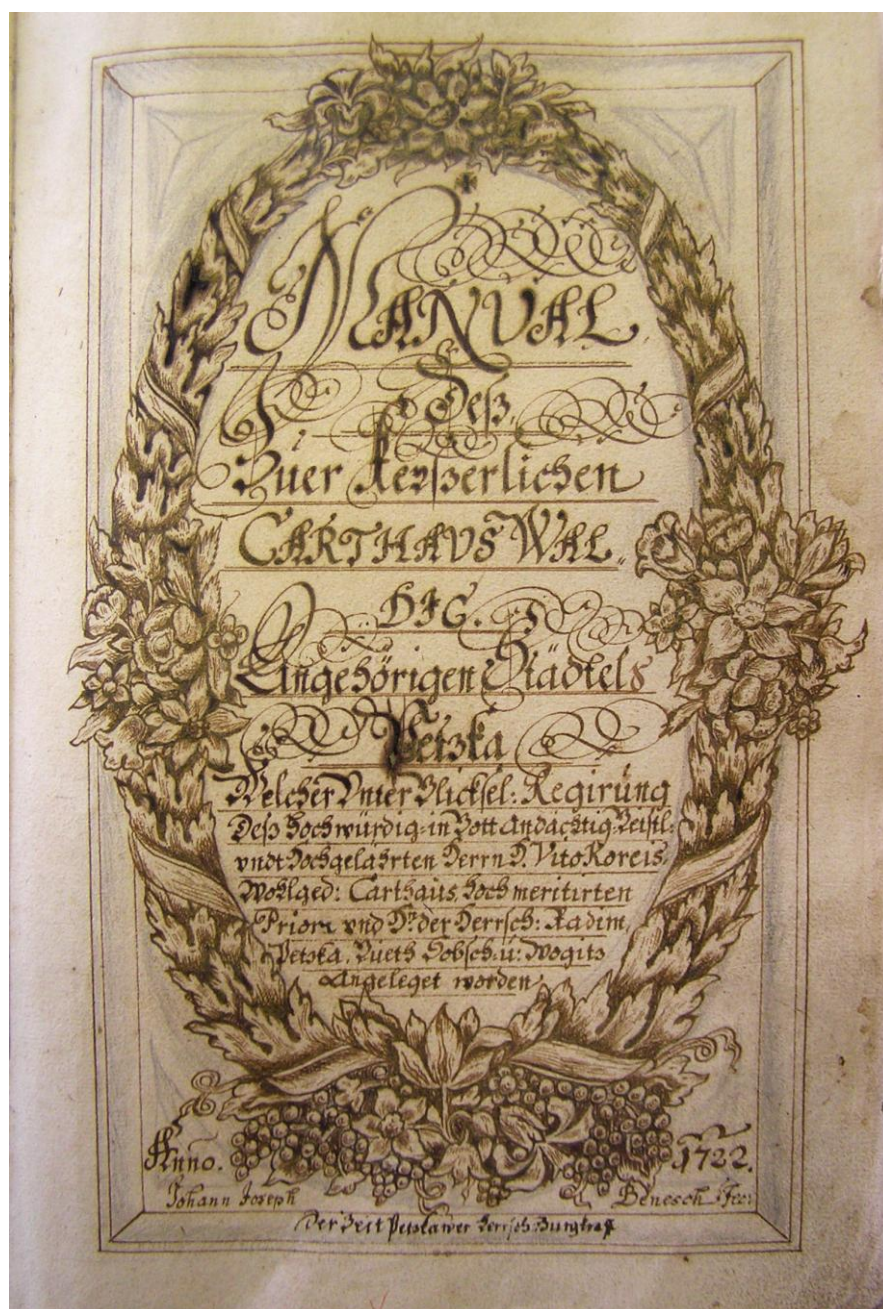 MANVAL
Deß
Zuer Keyßerlichen
CARTHAVS WAL,,
DIG.
Angehörigen Städtels
Petzka
Welcher Vnter Glicksel: Regirung
Deß Hochwürdig-in Gott Andächtig Geistl:
vndt Hochgelährten Herrn D. Vito Koreis.
Wohlged: Carthaus, Hoch meritirten
Priorn vnd der Herrsch: Radim,
Petzka, u:
Angeleget worden.
Anno. 1722.
Johann Joseph Benesch Fec:
Der Zeit Petzkawer Herrsch Burgraff